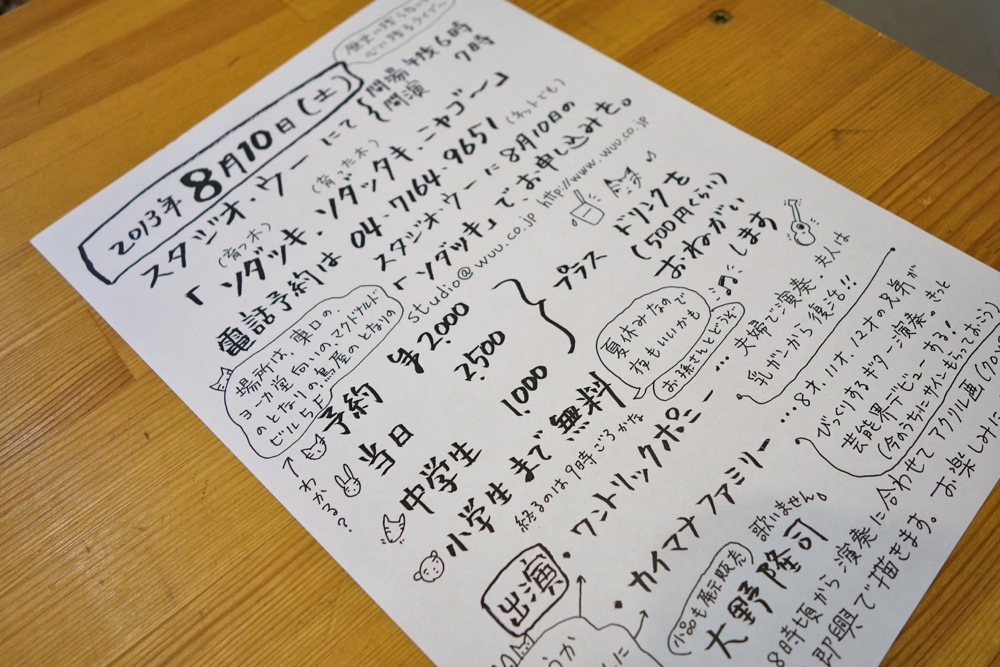 歴史に残らない
心に残るライブ〜
2013年8月10日(土)
スタジオ・ウーにて
開場 午後6時
開演 7時
(育つ木) (育った木)
「ソダツキ、ソダッタキ、ニャゴ〜」
電話予約は 04・7164・9651 (ネットでも)
スタジオウーに8月10日の
「ソダツキ」で、お申し込みを。
studio@wuu.co.jp http://www.wuu.co.jp
場所は、東口の、
ヨーカ堂向いのマクドナルド
のとなりの蔦屋のとなりの
ビル5F
わかる?
予約 ¥2.000
当日 2.500
中学生 1.000
小学生まで無料
プラス
ドリンクを
(500円くらい)
おねがい
します
終るのは9時ごろかな
夏休みなので
夜もいいかも
お孫さんとどうぞ
出演
・ワントリックポニー… 夫婦で演奏、夫人は
乳がんから復活!!
・カイマナファミリー…8才、11才、12才の兄弟が
びっくりするギター演奏。きっと
芸能界デビューする!
(今のうちにサインもらっておこう)
歌いません。
小品も展示販売
大野隆司
8時頃から演奏に合わせてアクリル画
即興で描きます。お楽しみに